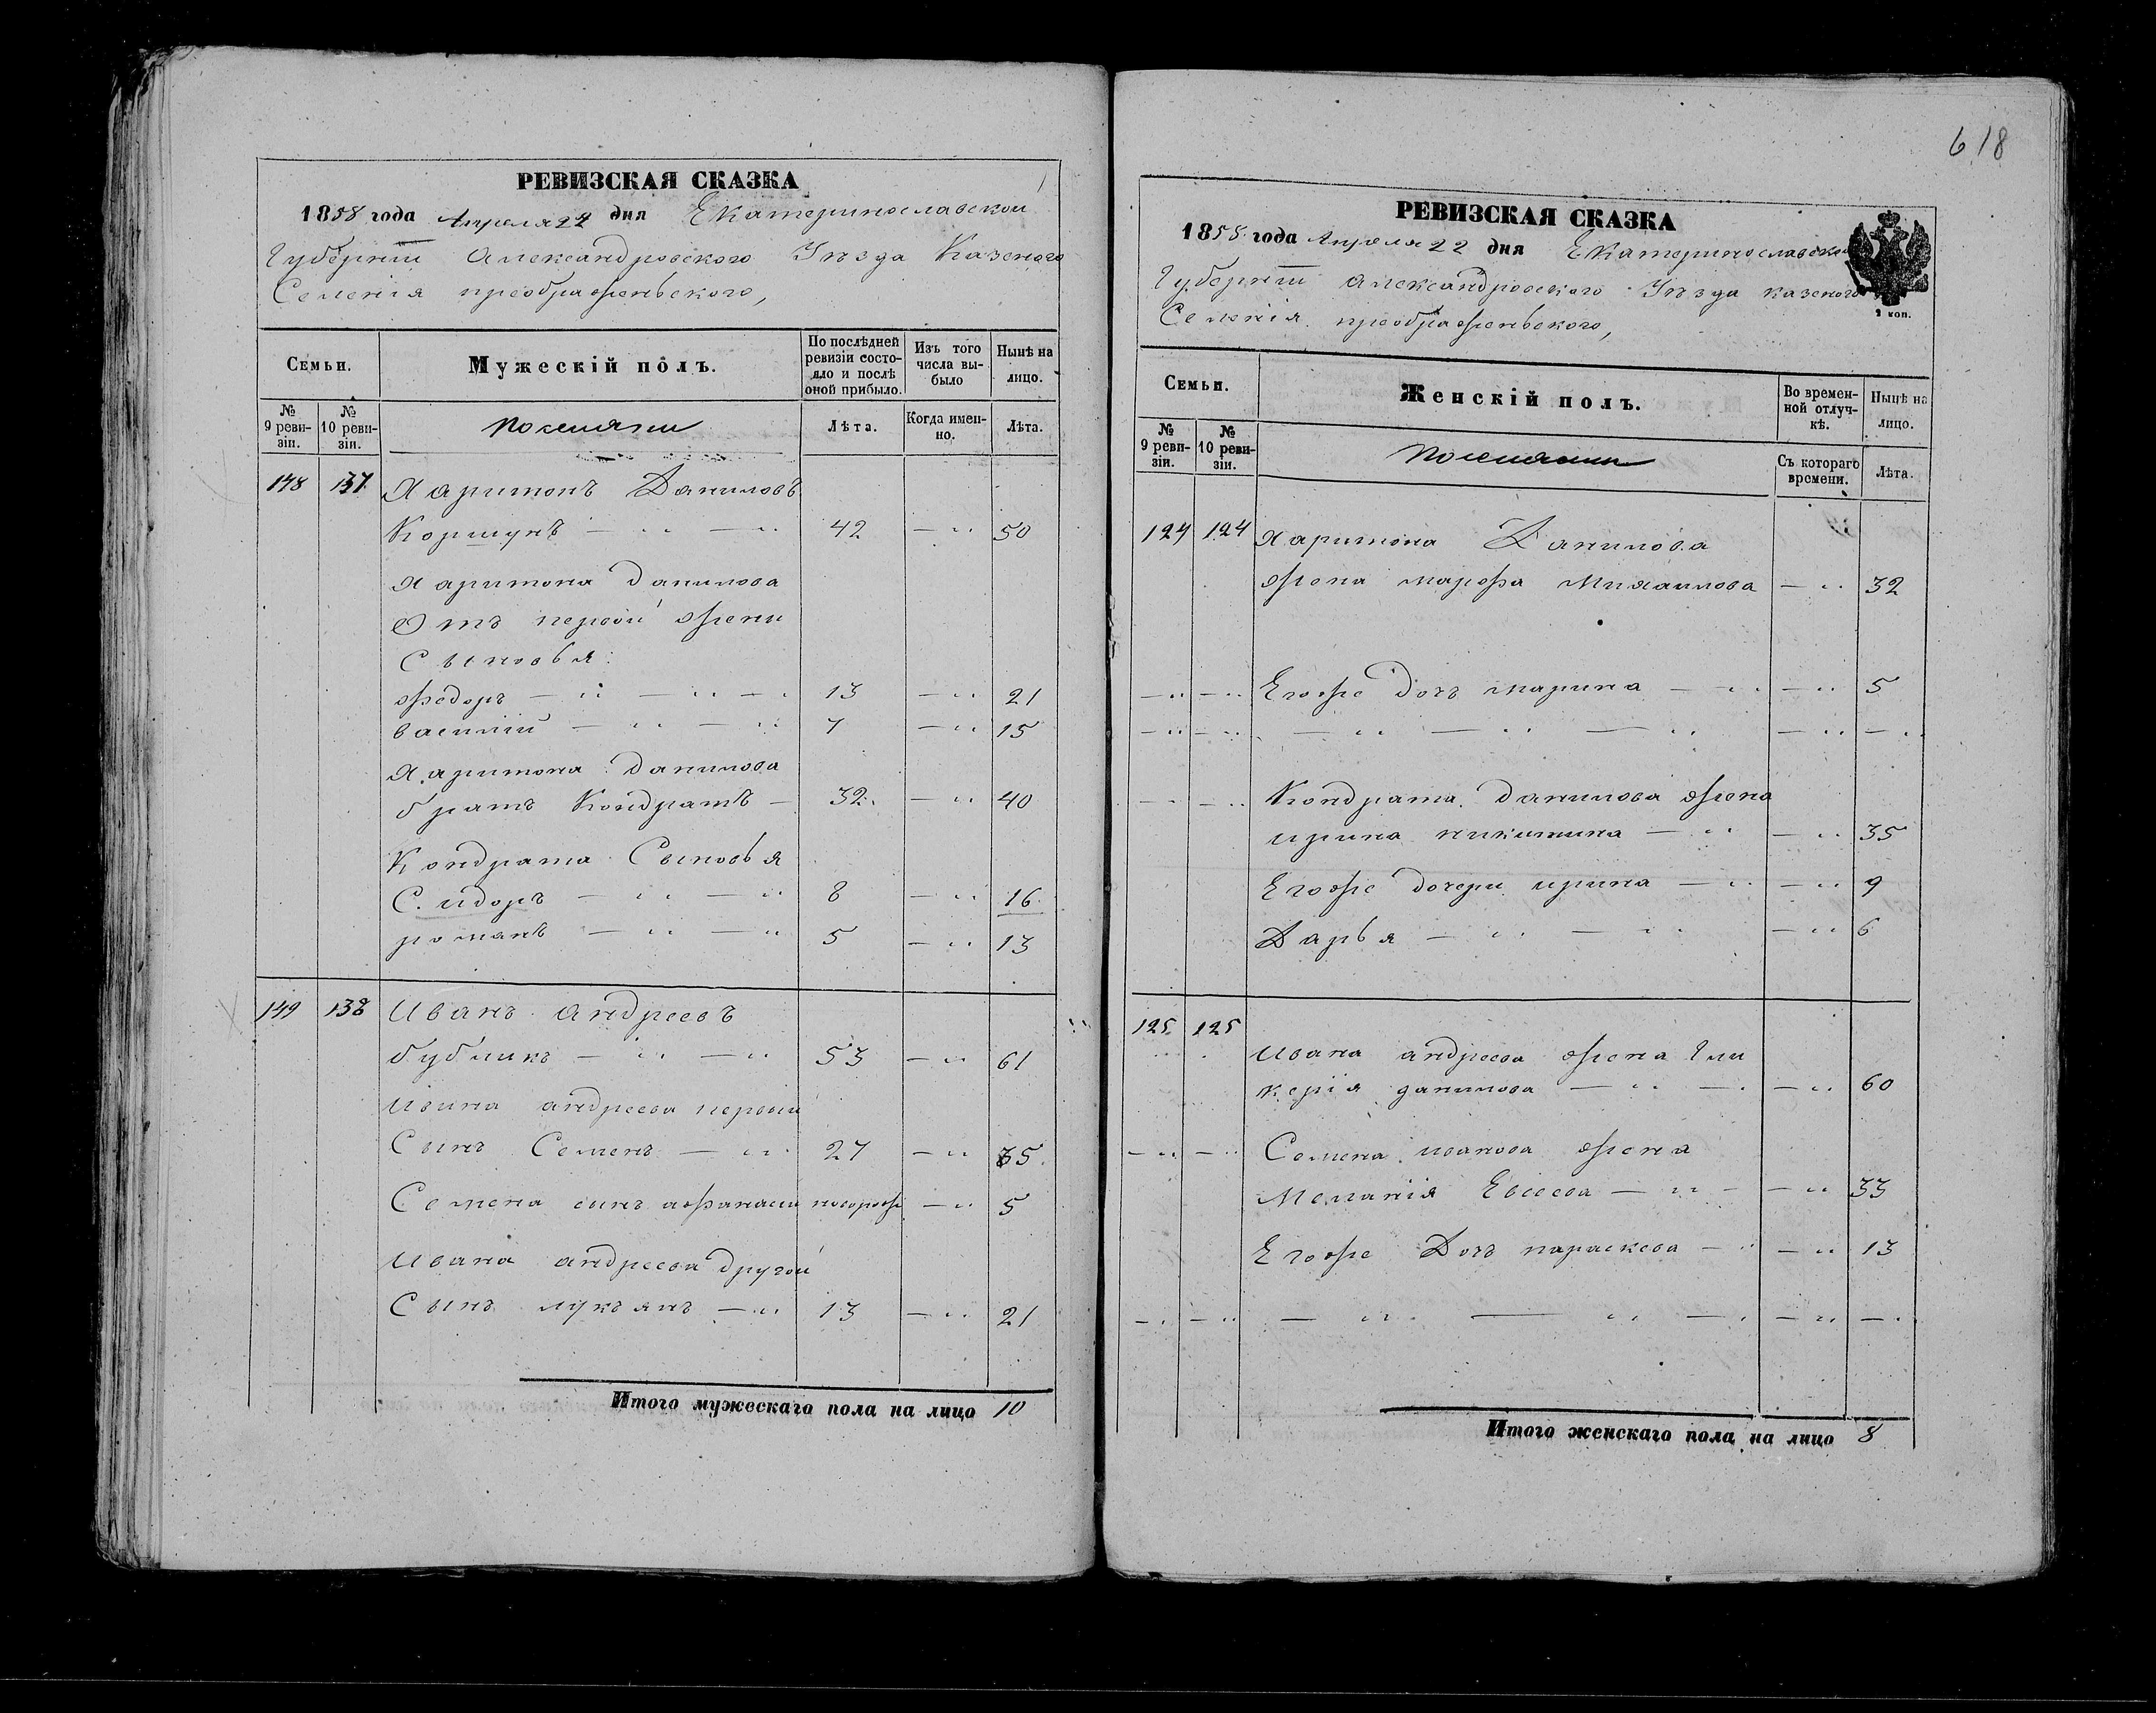 618
РЕВИЗСКАЯ СКАЗКА
1858 года Апреля 22 дня Екатеринославской
Губерніи Александровского Уѣзда Казеного
Селенія преображеньского,
Семьи.
Мужескій полъ.
По послѣдней ревизіи состояло и послѣ оной прибыло.
Изъ того числа выбыло
Нынѣ на лицо.
№ 9 ревизіи.
№ 10 ревизіи.
поселяни
Лѣта.
Когда именно.
Лѣта.
148 137 Харитонъ Даниловъ
Коршунъ — „ — „ 42 — „ 50
Харитона Данилова
Отъ первой жени
Сыновья:
Федоръ — „ — „ — 13 — „ 21
василій — „ — „ 7 — „ 15
Харитона Данилова
братъ Кондратъ — 32 — „ 40
Кондрата Сыновья
Сидоръ — „ — „ 8 — „ 16
романъ — „ — „ 5 — „ 13
149 138 Иванъ андреевъ
бубликъ — „ — „ 53 — „ 61
Ивана андреева первый
Сынъ Семенъ — „ 27 — „ 35
Семена сынъ афанасий новорож — „ 5
Ивана андреева другой
Сынъ лукъянъ — „ 13 — „ 21
Итого мужескаго пола на лицо 10
РЕВИЗСКАЯ СКАЗКА
1858 года Апреля 22 дня Екатеринославской
Губерніи Александровского Уѣзда казеного
Селенія преображеньского,
2 коп.
Семьи.
Женскій полъ.
Во временной отлучкѣ.
Нынѣ на лицо.
№ 9 ревизіи.
№ 10 ревизіи.
Поселянки
Съ котораго времени.
Лѣта.
124 124 Харитона Данилова
жена марфа Михаилова — „ 32
— „ — „ Егоже дочь марина — „ — „ 5
— „ — „ — „ — „ — „ — „ — „
— „ — „ Кондрата данилова жена
ирина никитина — „ — „ 35
Егоже дочери ирина — „ — „ 9
Дарья — „ — „ — „ 6
125 125
Ивана андреева жена Гли
керія данилова — „ — — „ 60
— „ — „ Семена иванова жена
Меланія Евсеева — „ — — „ 33
Егоже Дочь параскева — „ — „ 13
— „ — „ — „ — „ — „ — „ — „
Итого женскаго пола на лицо 8